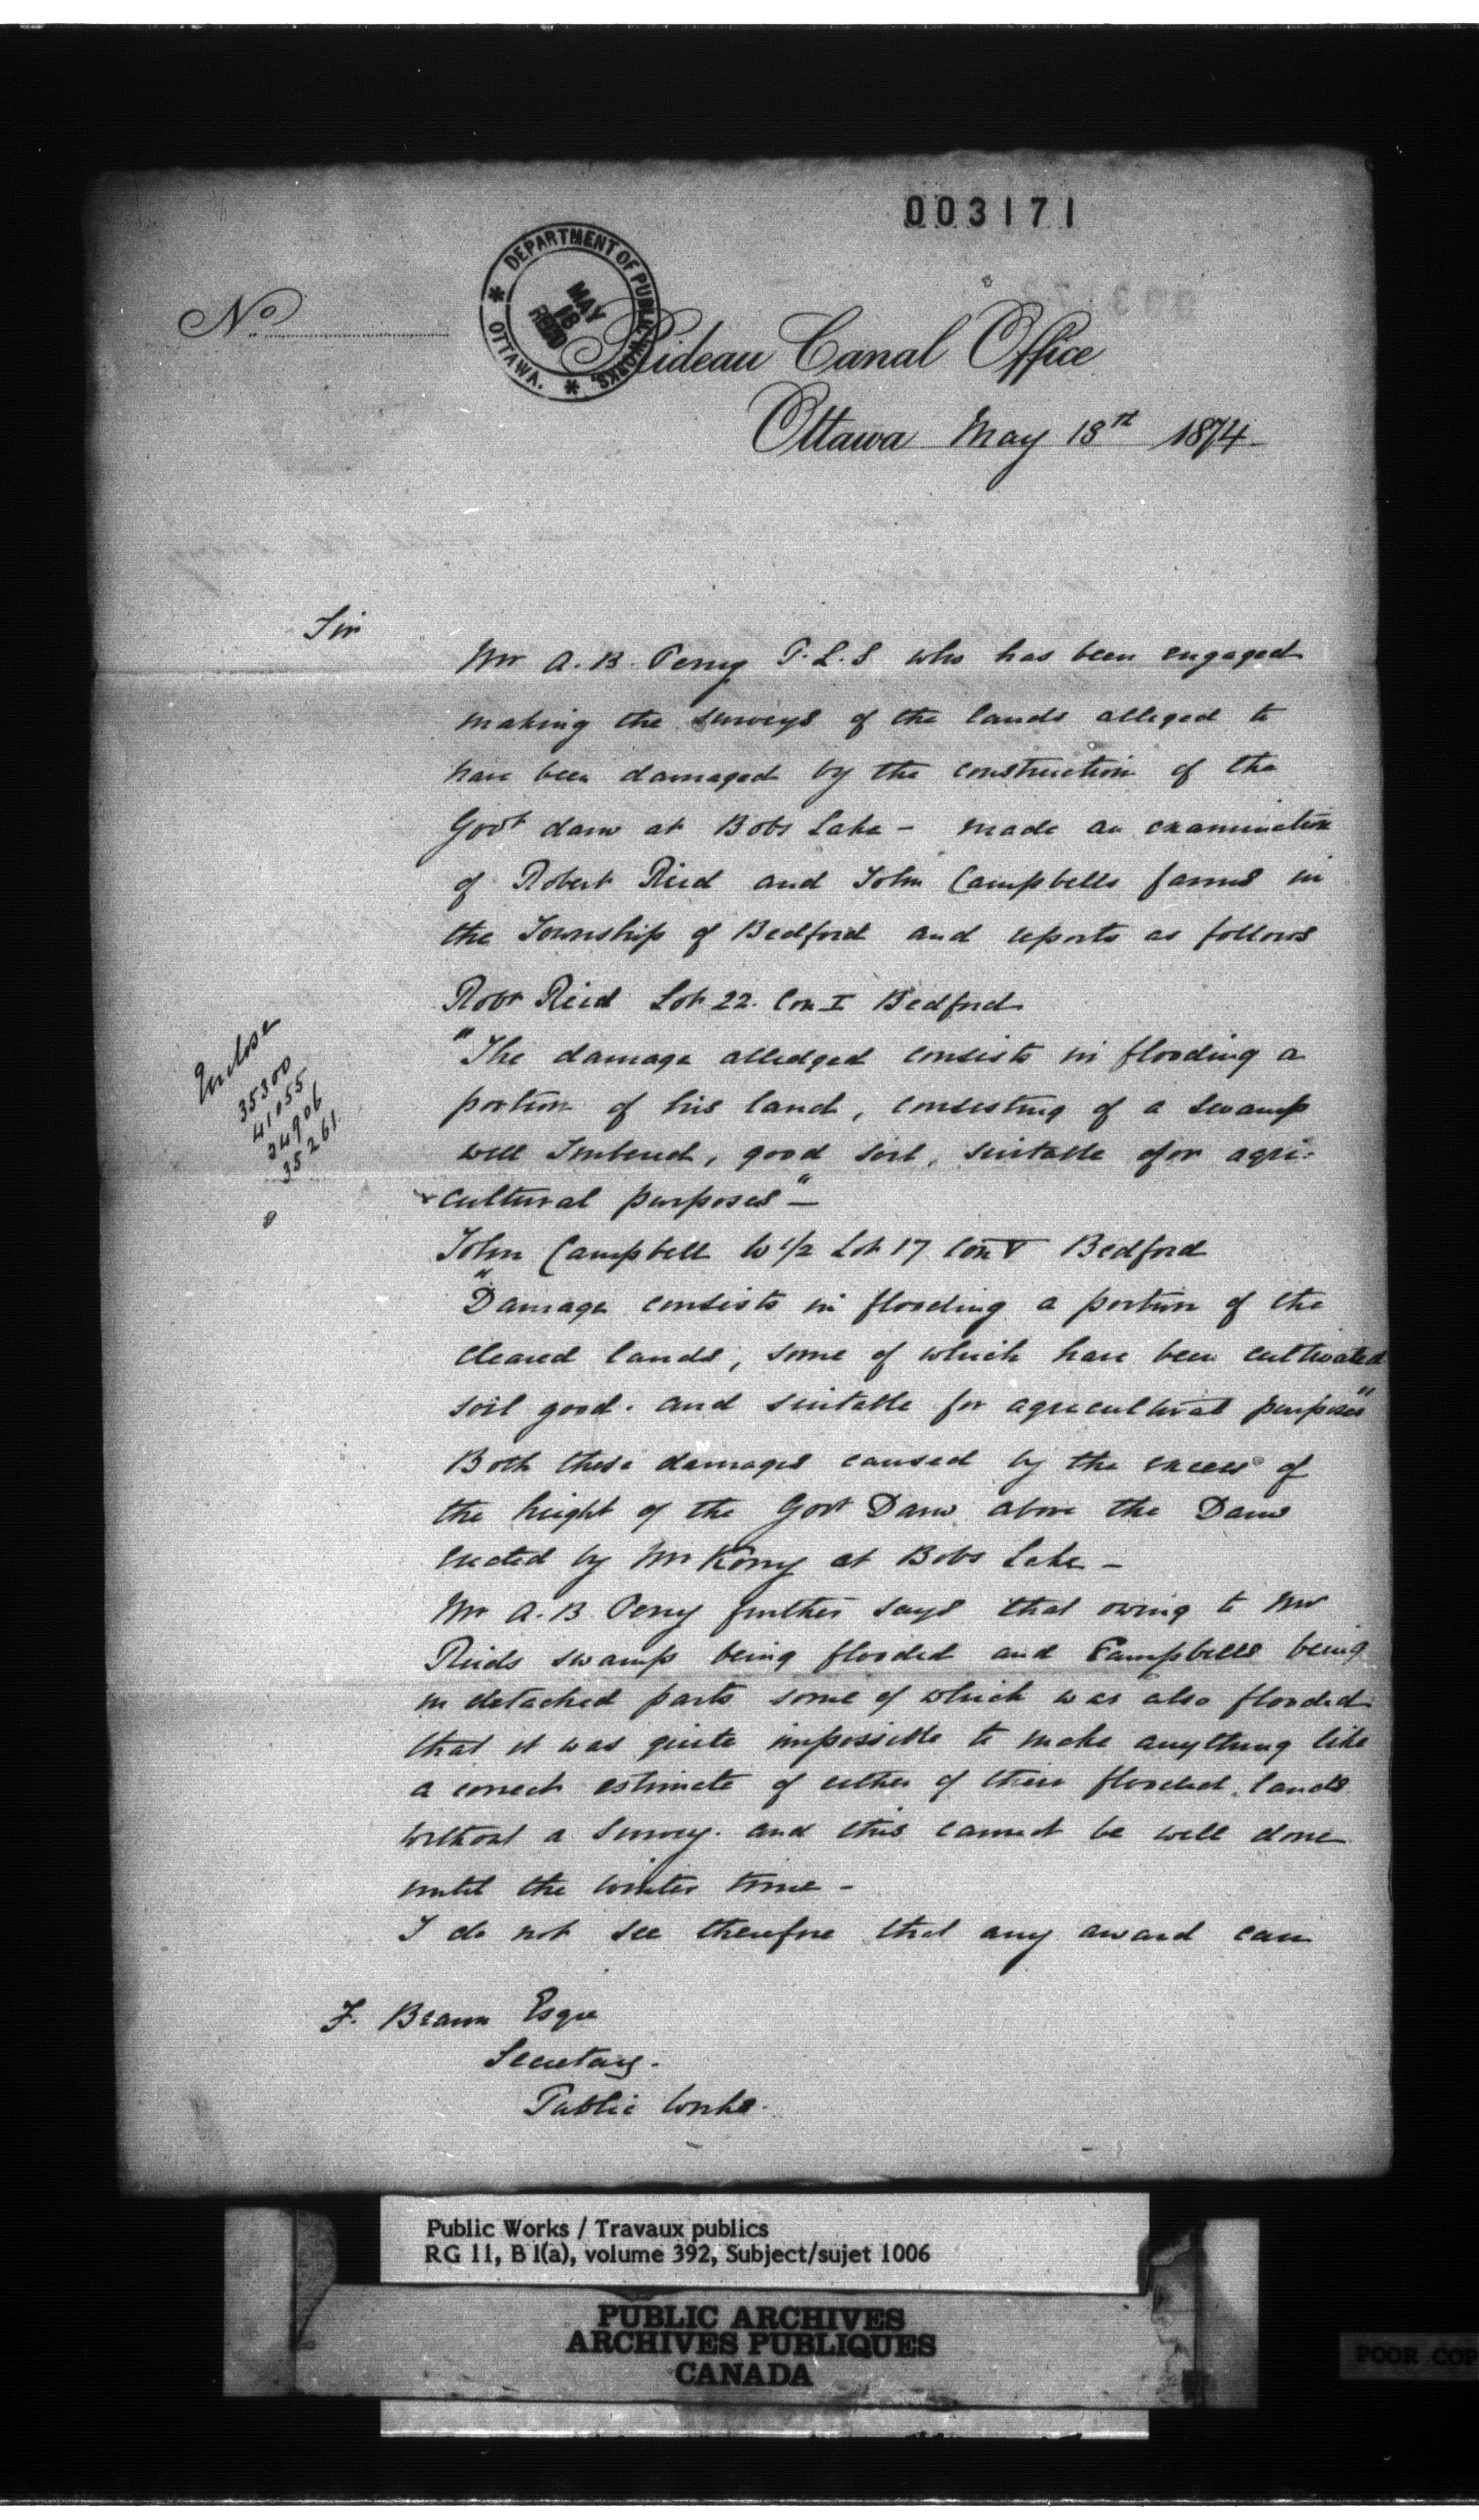 003171
DEPARTMENT OF PUBLIC WORKS.
OTTAWA.
MAY
18
RECD
No
Rideau Canal Office
Ottawa May 18th 1874
Sir
Mr A. B. Perry P.L.S who has been engaged
making the surveys of the lands alleged to
have been damaged by the construction of the
Govt dam at Bobs Lake - made an examination
of Robert Reid and John Campbells farms in
the Township of Bedford and reports as follows
Robt Reid Lot 22. Con I Bedford
"The damage alledged consists in flooding a
portion of his land, consisting of a swamp
well timbered, good soil, suitable for agri-
cultural purposes" -
John Campbell W 1/2 Lot 17 Con V Bedford
"Damage consists in flooding a portion of the
cleared lands, some of which have been cultivated
soil good. and suitable for agricultural purposes"
Both these damages caused by the excess of
the height of the Govt Dam above the Dam
erected by Mr Korry at Bobs Lake -
Mr A. B. Perry further says that owing to Mr
Reids swamp being flooded and Campbells being
in detached parts some of which was also flooded
that it was quite impossible to make anything like
a correct estimate of either of their flooded lands
without a survey. and this cannot be well done
until the winter time -
I do not see therefore that any award can
Enclose
35300
41055
24906
35261
F. Braun Esqre
Secretary.
Public Works.
Public Works / Travaux publics
RG 11, B 1(a), volume 392, Subject/sujet 1006
PUBLIC ARCHIVES
ARCHIVES PUBLIQUES
CANADA
POOR COP